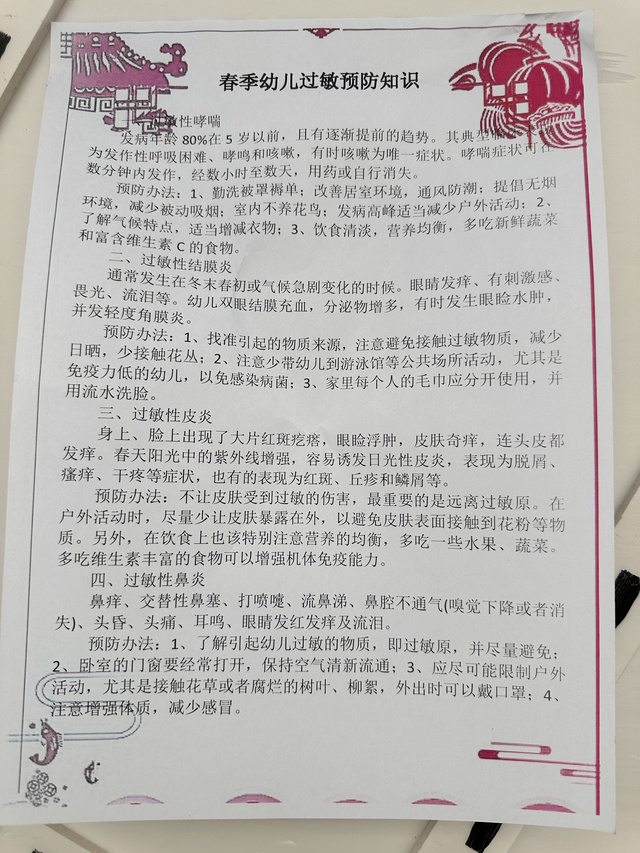 春季幼儿过敏预防知识
过敏性哮喘
发病年龄 80%在 5 岁以前，且有逐渐提前的趋势。其典型
为发作性呼吸困难、哮鸣和咳嗽，有时咳嗽为唯一症状。哮喘症状可在
数分钟内发作，经数小时至数天，用药或自行消失。
预防办法：1、勤洗被罩褥单；改善居室环境，通风防潮；提倡无烟
环境，减少被动吸烟；室内不养花鸟；发病高峰适当减少户外活动；2、
了解气候特点，适当增减衣物；3、饮食清淡，营养均衡，多吃新鲜蔬菜
和富含维生素 C 的食物。
二、过敏性结膜炎
通常发生在冬末春初或气候急剧变化的时候。眼睛发痒、有刺激感、
畏光、流泪等。幼儿双眼结膜充血，分泌物增多，有时发生眼睑水肿，
并发轻度角膜炎。
预防办法：1、找准引起的物质来源，注意避免接触过敏物质，减少
日晒，少接触花丛；2、注意少带幼儿到游泳馆等公共场所活动，尤其是
免疫力低的幼儿，以免感染病菌；3、家里每个人的毛巾应分开使用，并
用流水洗脸。
三、过敏性皮炎
身上、脸上出现了大片红斑疙瘩，眼睑浮肿，皮肤奇痒，连头皮都
发痒。春天阳光中的紫外线增强，容易诱发日光性皮炎，表现为脱屑、
瘙痒、干疼等症状，也有的表现为红斑、丘疹和鳞屑等。
预防办法：不让皮肤受到过敏的伤害，最重要的是远离过敏原。在
户外活动时，尽量少让皮肤暴露在外，以避免皮肤表面接触到花粉等物
质。另外，在饮食上也该特别注意营养的均衡，多吃一些水果、蔬菜。
多吃维生素丰富的食物可以增强机体免疫能力。
四、过敏性鼻炎
鼻痒、交替性鼻塞、打喷嚏、流鼻涕、鼻腔不通气(嗅觉下降或者消
失)、头昏、头痛、耳鸣、眼睛发红发痒及流泪。
预防办法：1、了解引起幼儿过敏的物质，即过敏原，并尽量避免；
2、卧室的门窗要经常打开，保持空气清新流通；3、应尽可能限制户外
活动，尤其是接触花草或者腐烂的树叶、柳絮，外出时可以戴口罩；4、
注意增强体质，减少感冒。